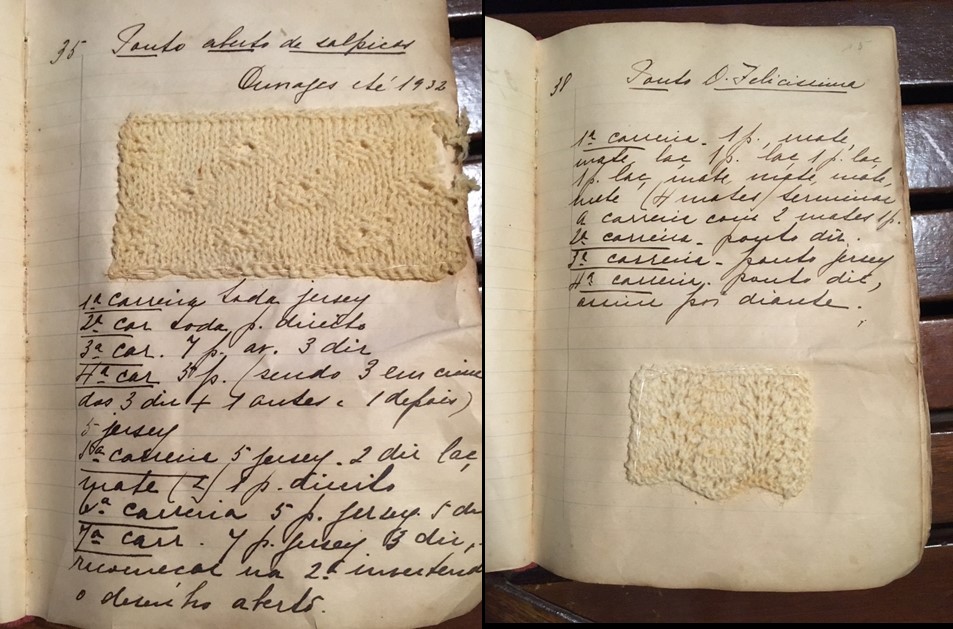 35 Ponto aberto de salpicos
Ournages été 1932
1ª carreira toda jersey
2ª car toda p. direito
3ª car. 7 p. av. 3 dir
4ª car 5 p. (sendo 3 em cima
dos 3 dir + 1 antes e 1 depois)
5 jersey
5ª carreira 5 jersey. 2 dir lac,
mate (2) 1 p. direito
6ª carreira 5 p. jersey. 5 dir
7ª carr. 7 p. jersey 3 dir,
recomeçar na 2ª invertendo
o desenho aberto.
38 Ponto D. Felicissima
1ª carreira - 1 p., mate,
mate, lac 1 p. lac 1 p. lac,
1 p. lac, mate mate, mate,
mate (4 mates) terminar
a carreira com 2 mates 1 p.
2ª carreira - ponto dir.
3ª carreira - ponto jersey
4ª carreira. ponto dir,
assim por diante.